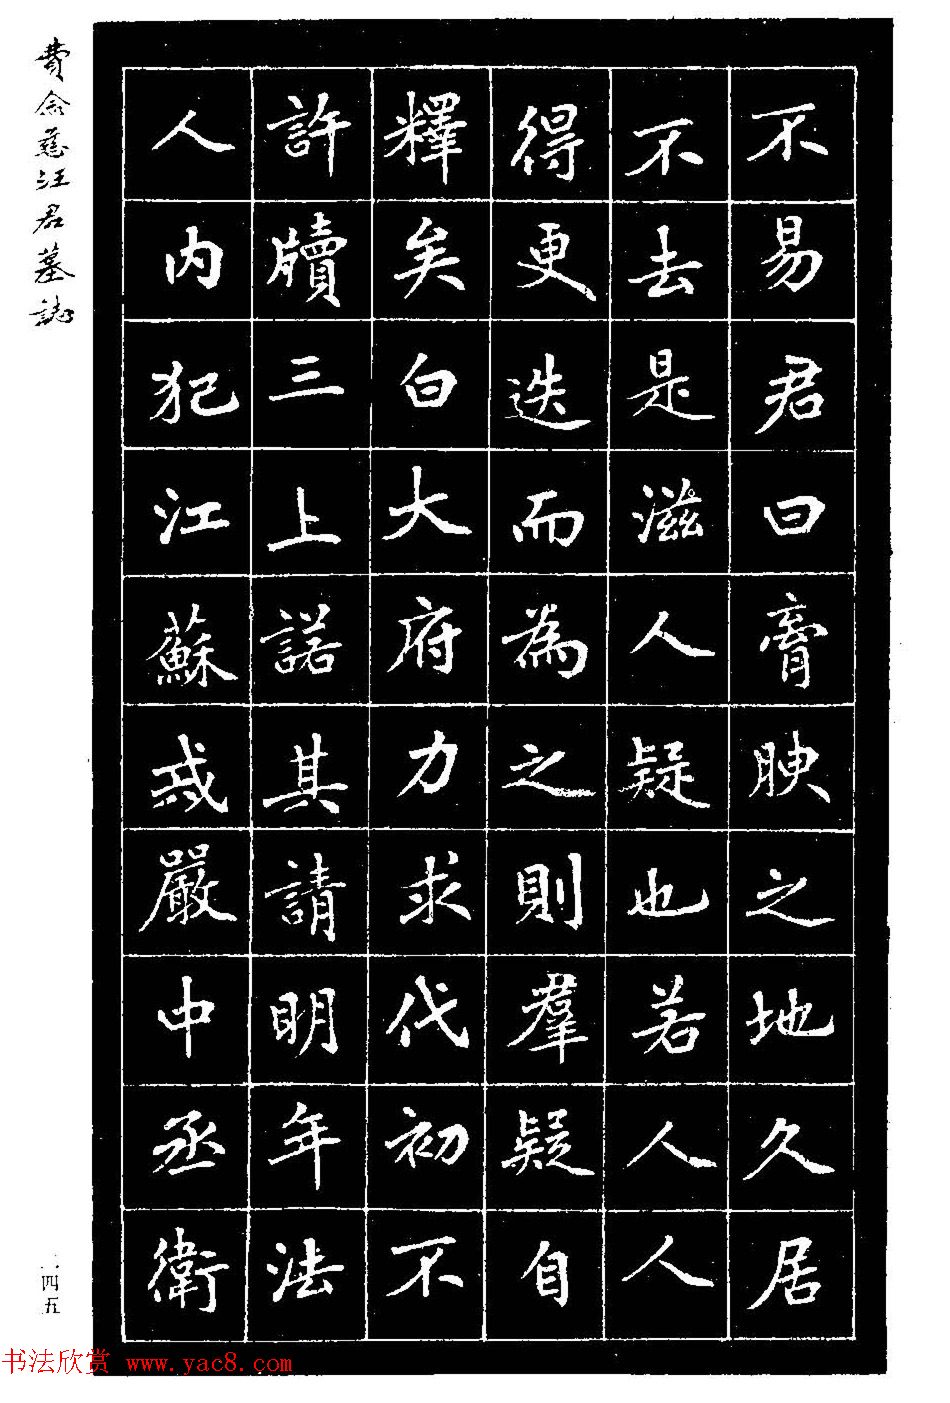 不易君曰膏腴之地久居
不去是滋人疑也若人人
得更迭而為之則羣疑自
釋矣白大府力求代初不
許牘三上諾其請明年法
人內犯江蘇戒嚴中丞衛
費念慈汪君墓誌
一四五
书法欣赏 www.yac8.com